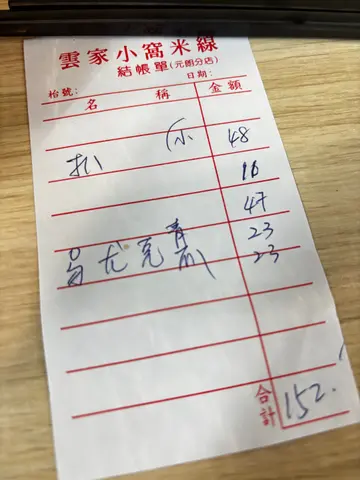 雲家小窩米線
結帳單(元朗分店)
枱號： 日期：
名稱 金額
扒 48
16
47
青 23
瓜 23
合計 152.